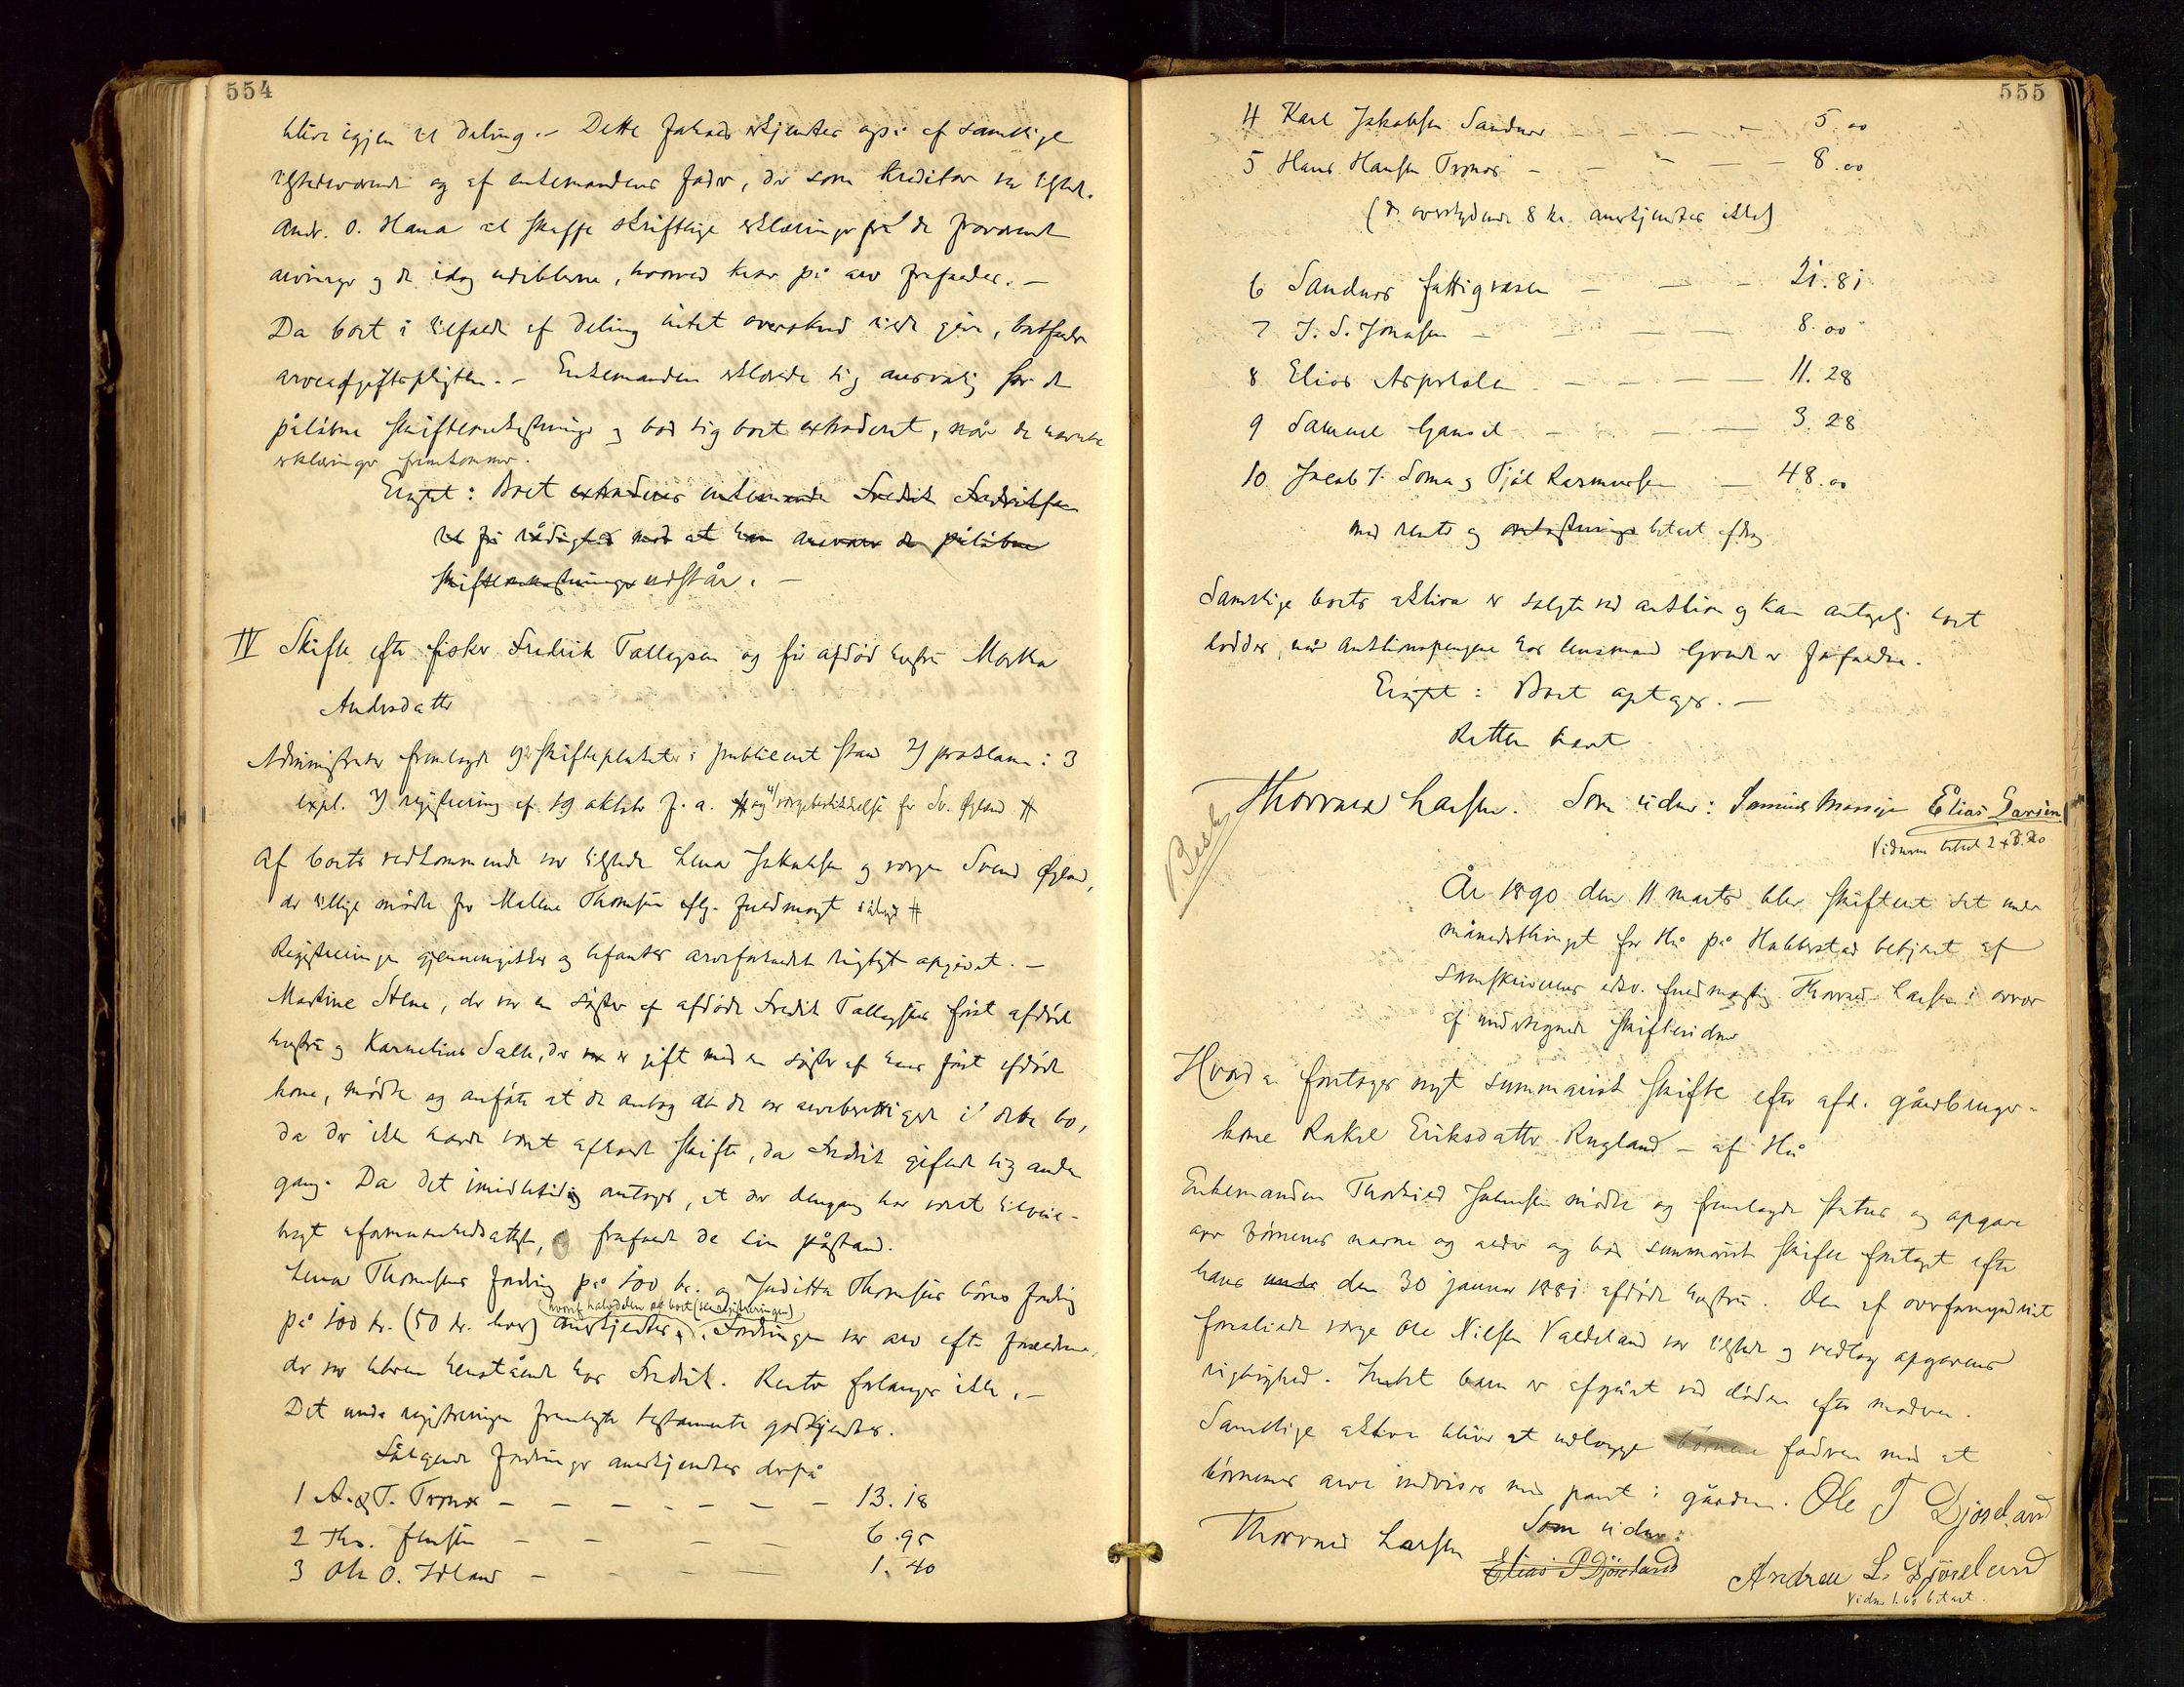 554
blive igjen til deling. - Dette forhold erkjendtes også af samtlige
tilstedeværende og af enkemandens fader, der som kreditor var tilstede.
Andr. O. Hana at skaffe skriftlige erklæringer fra de fraværende
arvinger og de idag udeblevne, hvorved krav på arv frafaldes. -
Da boet i tilfælde af deling intet overskud vilde give, bortfalder
arveafgiftspligten. - Enkemanden erklærede sig ansvarlig for de
påløbne skifteomkostninger og bad sig boet extraderet, når de nævnte
erklæringer fremkommer.
Eragtet: Boet extraderes enkemanden Fredrik Fredriksen
til fri rådighed mod at han ansvarer de påløbne
skifteomkostninger udstår. -
IV Skifte efter fisker Fredrik Tallegsen og før afdød hustru Martha
Andersdatter
Administrator fremlagde 1) skifteplakater i publiceret stand 2) proklama i 3
expl. 3) registrering af 19 oktober f. a. # og 4) værgebeskikkelse for Sv. Øglend #
Af boets vedkommende var tilstede Lena Jakobsen og værgen Svend Øglend,
der tillige mødte for Malene Thomsen eflg. fuldmagt #
Registreringen gjennemgikkes og befantes arveforholdet rigtigt opgivet. -
Martine Stene, der var en søster af afdøde Fredrik Tallegsens først afdøde
hustru og Karnelius Salte, der var er gift med en søster af hans først afdøde
kone, mødte og anførte at de antog at de var arveberettigede i dette bo,
da der ikke havde vært afholdt skifte, da Fredrik giftede sig anden
gang. Da det imidlertidig antoges, at der dengang har været tilveie-
bragt uformuenhedsattest, frafaldt de sin påstand.
Lena Thomsens fordring på 100 kr. og Juditta Thomsens børns fordring
(hvoraf halvdelen af boet (se registreringen)
på 100 kr. (50 kr. hver) anerkjendtes. Fordringen var arv efter forældrene,
der var bleven henstående hos Fredrik. Renter forlanges ikke. -
Det under registreringen fremlagte testamente godkjendtes.
Følgende fordringer anerkjendtes derpå
1 A. & T. Tronæs - - - - - - - 13.18
2 Ths. Jensen - - - - 6.95
3 Ole O. Idland - - - - 1.40
555
4 Karl Jakobsen Sandnes - - - - 5.00
5 Hans Hansen Tronæs - - - - - 8.00
(de overskydende 8 kr. anerkjendtes ikke)
6 Sandnes fattigvæsen - - - 21.81
7 J. S. Jonasen - - - - 8.00
8 Elias Asperholen - - - - 11.28
9 Samuel Gausel - - - - 3.28
10 Jacob J. Soma og Tjøl Rasmussen - 48.00
med renter og omkostninger betalt afdrag
Samtlige boets aktiva er solgte ved auktion og kan antagelig boet
sluttes, når auktionspengene hos lensmand Grude er forfaldne.
Eragtet: Boet optages. -
Retten hævet
Thorvald Larsen. Som vidner: Elias Larsen
Vidnerne betalt
Besk
År 1890 den 11 marts blev skifteret sat under
månedsthinget for Hå på Hobberstad betjent af
sorenskriverens edsv. fuldmægtig Thorvald Larsen i overvær
af undertegnede skiftevidner
Hvorda foretoges nyt summarisk skifte efter afd. gårdbruger-
kone Rakel Eriksdatter Rugland - af Hå
Enkemanden Thorkild Jakobsen mødte og fremlagde status og opgave
over børnenes navne og alder og bad summarisk skifte foretaget efter
hans under den 30 januar 1881 afdøde hustru. Den af overformynderiet
foreslåede værge Ole Nilsen Valdeland var tilstede og vedtog opgavens
rigtighed. Intet barn er afgået ved døden efter moderen.
Samtlige aktiva bliver at udlægge faderen mod at
børnenes arv indvises med pant i gården. Ole T Djøseland
Thorvald Larsen Som vidner:
Elias P Djøseland Andreas L. Djøseland
Vidne 1.60 betalt.